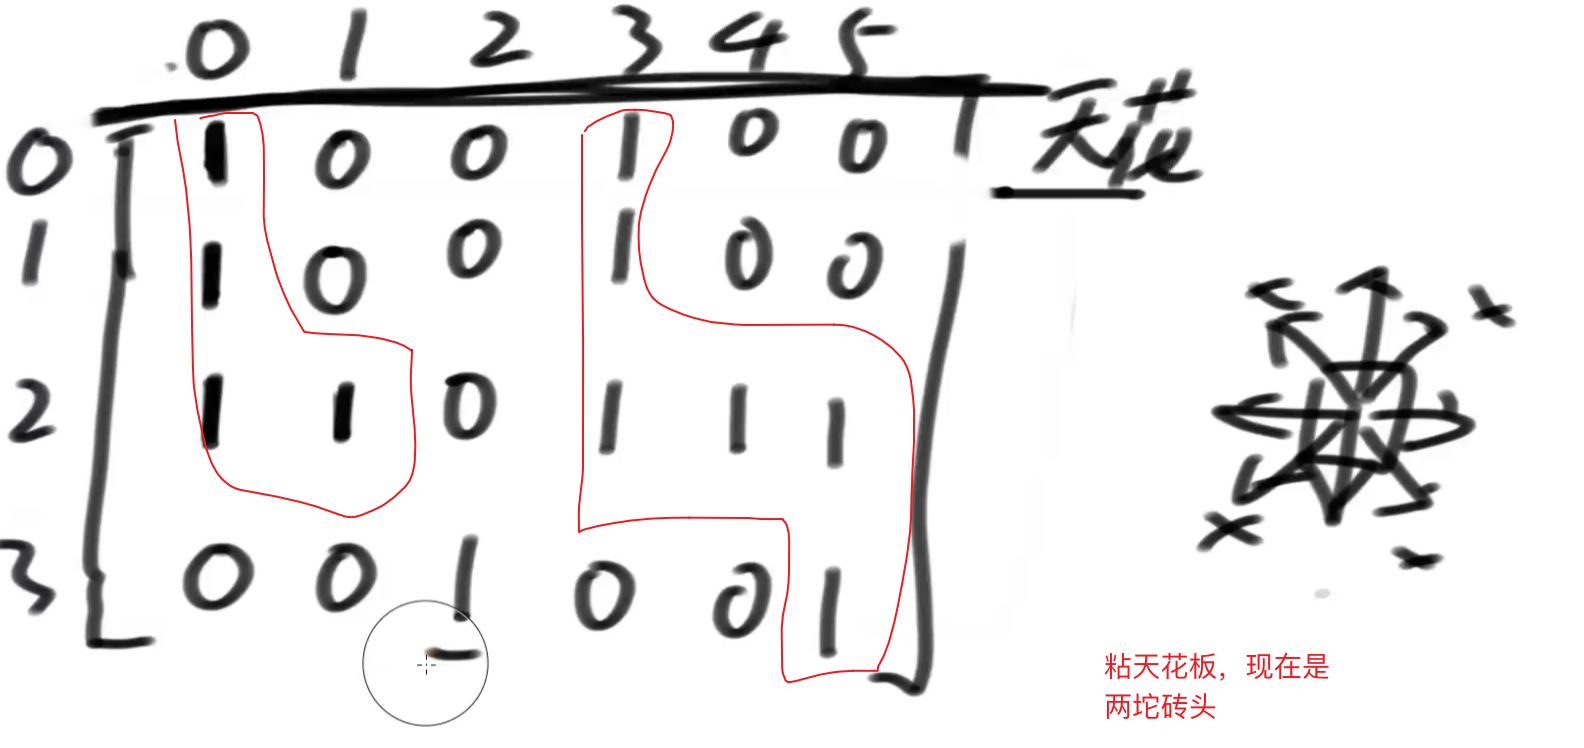 0 1 2 3 4 5
天花
0 1 0 0 1 0 0
1 1 0 0 1 0 0
2 1 1 0 1 1 1
3 0 0 1 0 0 1
粘天花板，现在是
两坨砖头